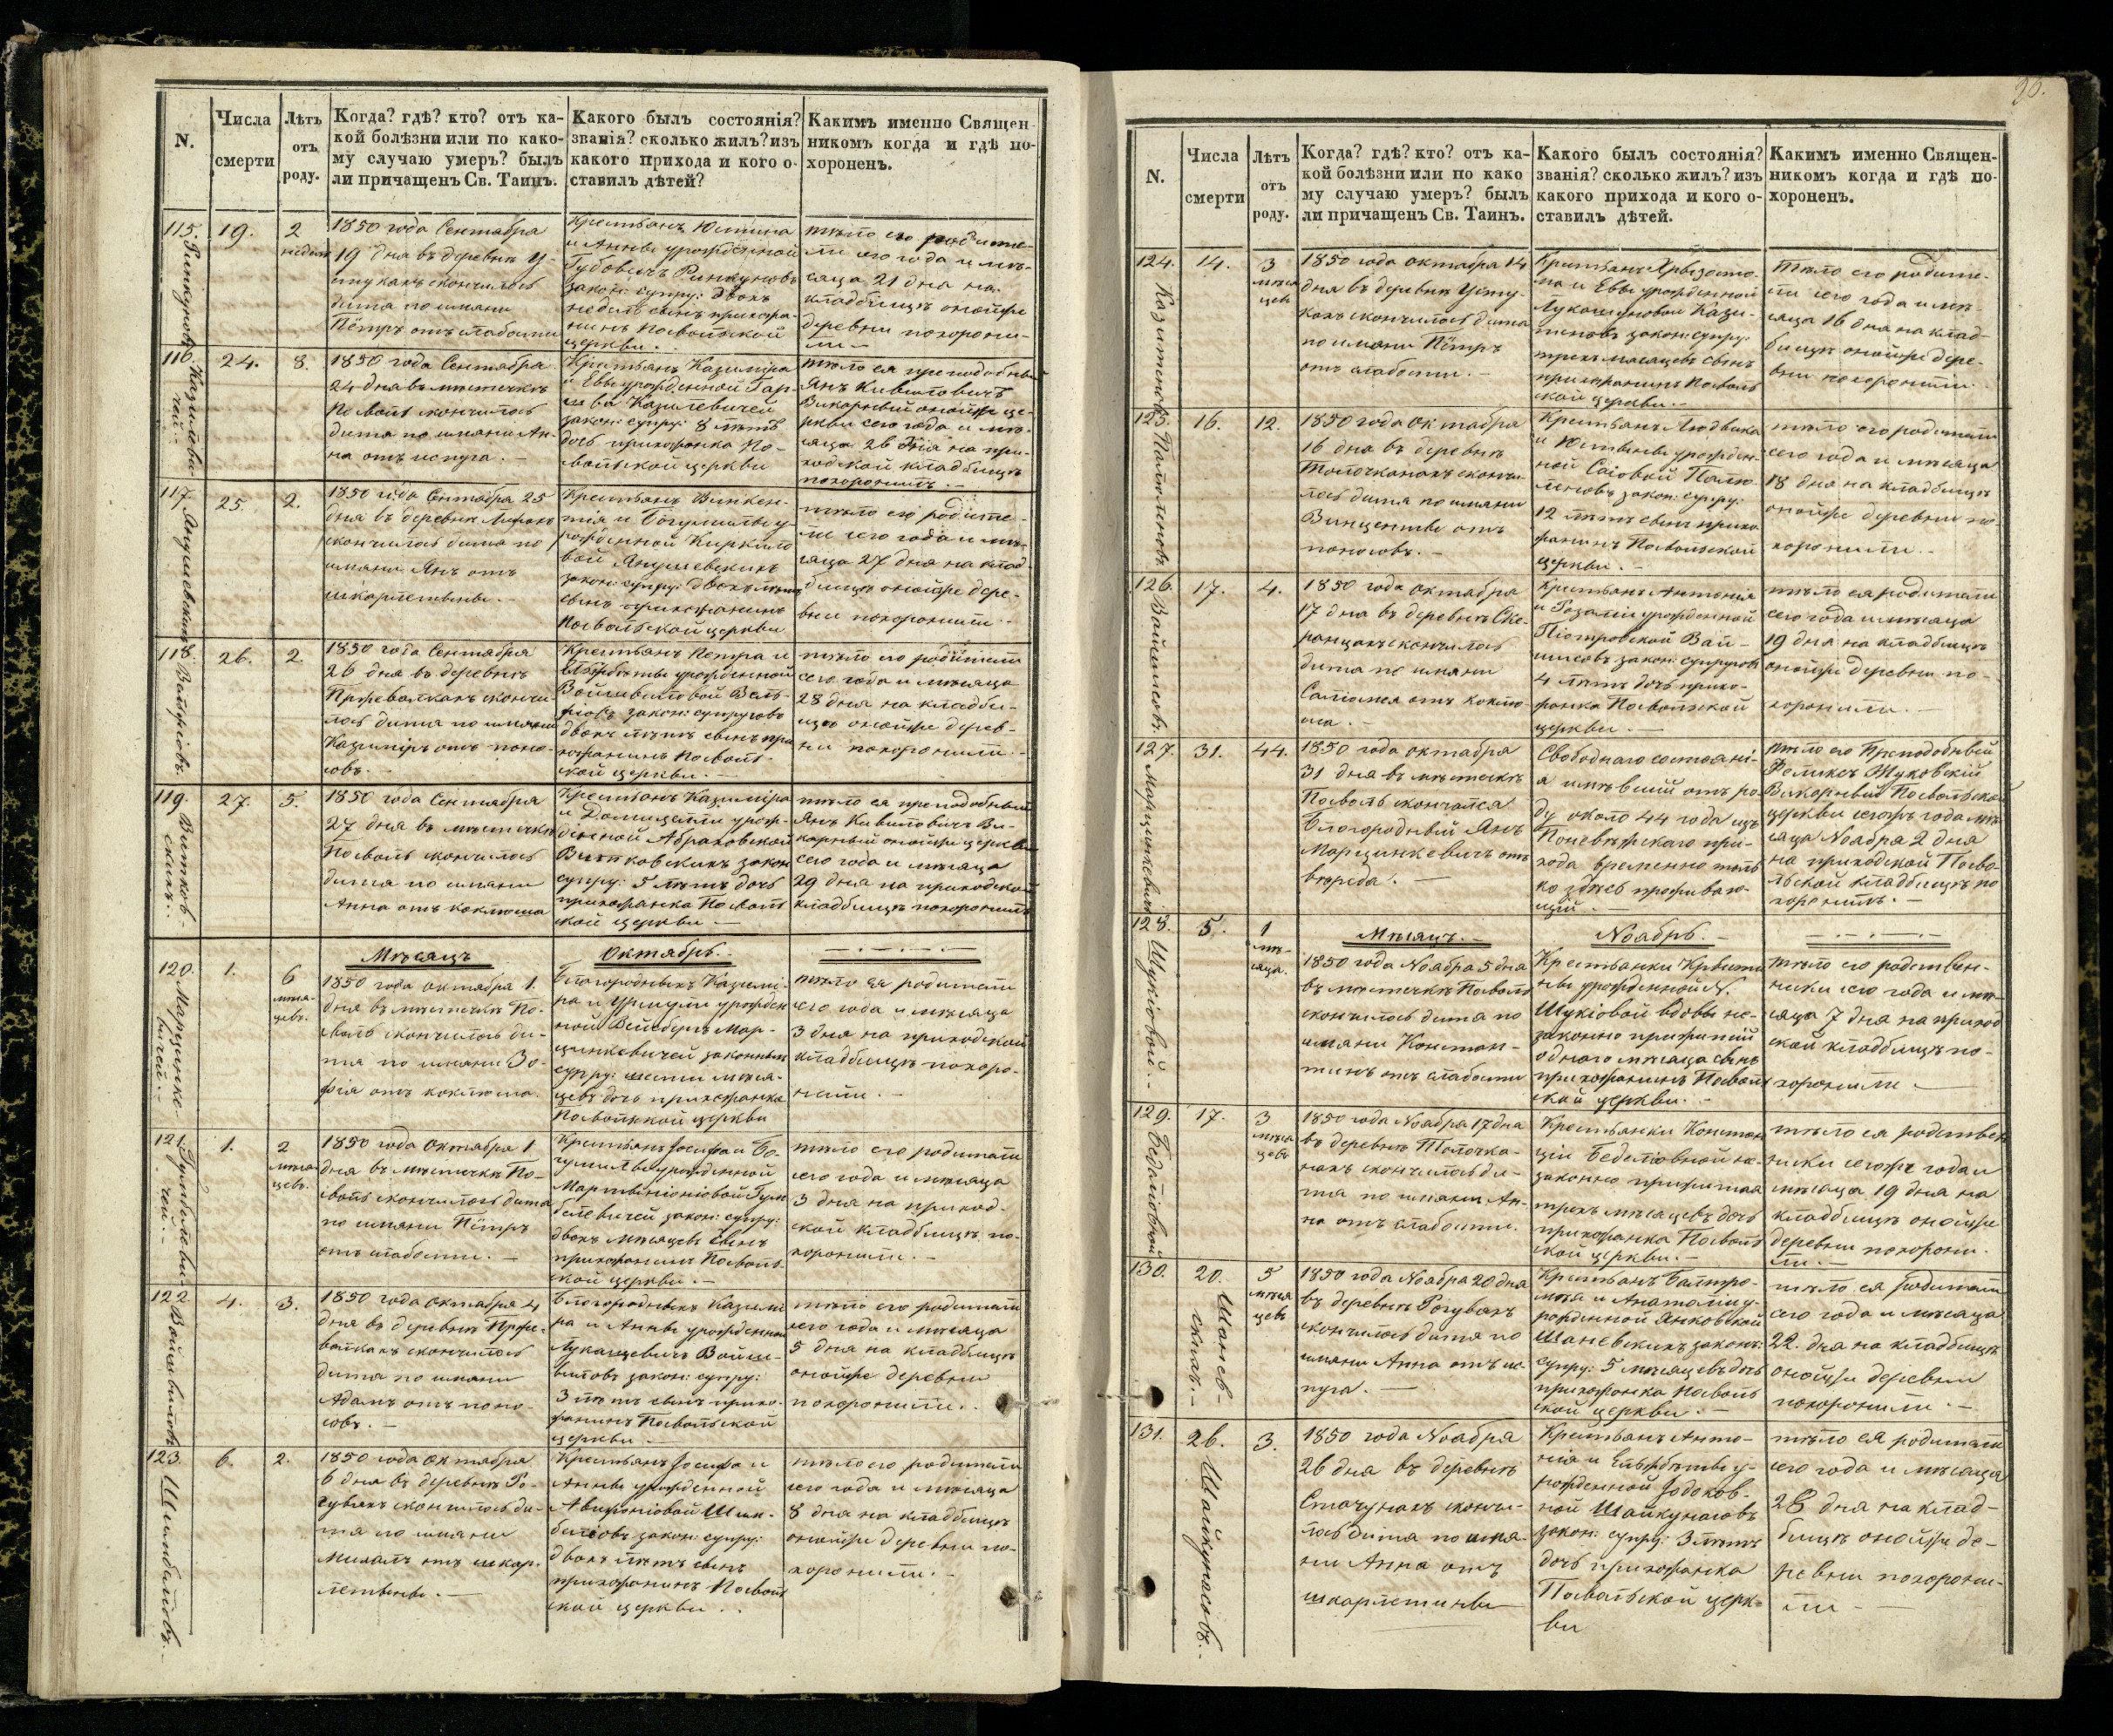 N.
Числа
смерти
Лѣтъ
отъ
роду.
Когда? гдѣ? кто? отъ ка-
кой болѣзни или по како-
му случаю умеръ? былъ
ли причащенъ Св. Таинъ.
Какого былъ состоянія?
званія? сколько жилъ? изъ
какого прихода и кого о-
ставилъ дѣтей?
Какимъ именно Священ-
никомъ когда и гдѣ по-
хороненъ.
115.
19.
2
1850 года Сентября
19 дня въ деревнѣ У-
скончилось
дитя по имяни
Пётръ отъ слабости
и Анны урожденной
закон: супру: двохъ
церкви.
тѣло его родите-
ли сего года и мѣ-
сяца 21 дня на
кладбищѣ онойже
деревни похорони-
ли
116.
24.
8.
1850 года Сентября
24 дня въ мѣстечкѣ
Посволь скончилось
дитя по имяни Ан-
на отъ испуга.
Крестьянъ Казиміра
и Евы урожденной
закон: супру: 8 лѣтъ
дочь прихожанка По-
свольской церкви
тѣло ея преподобный
Янъ
Викарный онойже це-
ркви сего года и мѣ-
сяца 26 дня на при-
ходской кладбищѣ
похоронилъ.
117.
25.
2.
1850 года Сентября 25
дня въ деревнѣ
скончилось дитя по
имяни Янъ отъ
шкарлетыны.
Крестьянъ Викен-
тія и Богумилы у-
рожденной
закон: супру: двохъ лѣтъ
сынъ прихожанинъ
Посвольской церкви
тѣло его родите-
ли сего года и мѣ-
сяца 27 дня на клад-
бищѣ онойже дере-
вни похоронили.
118.
26.
2.
1850 года Сентября
26 дня въ деревнѣ
скончи-
лось дитя по имяни
Казиміръ отъ поно-
совъ.
Крестьянъ Петра и
урожденной
закон: супруговъ
двохъ лѣтъ сынъ при
хожанинъ Посволь-
ской церкви.
тѣло его родители
сего года и мѣсяца
28 дня на кладби-
щѣ онойже дерев-
ни похоронили.
119.
27.
5.
1850 года Сентября
27 дня въ мѣстечкѣ
Посволь скончилось
дитя по имяни
Анна отъ коклюша
Крестьянъ Казиміра
и Доміцелли урож-
денной Абрамовской
Витковскихъ закон
супру: 5 лѣтъ дочь
прихожанка Посволь
ской церкви
тѣло ея преподобный
Янъ Ви-
карный онойже церкви
сего года и мѣсяца
29 дня на приходской
кладбищѣ похоронилъ
Мѣсяцъ
Октябрь.
120.
1.
6
мѣся-
цевъ.
1850 года октября 1.
дня въ мѣстечкѣ По-
своль скончилось ди-
тя по имяни Зо-
фія отъ коклюша.
Благородныхъ Казимі-
ра и урожден
ной Мар-
цинкевичей законныхъ
супру: шести мѣся-
цевъ дочь прихожанка
Посвольской церкви
тѣло ея родители
сего года и мѣсяца
3 дня на приходской
кладбищѣ похоро-
нили.
121.
1.
2
мѣся-
цевъ.
1850 года Октября 1
дня въ мѣстечкѣ По-
своль скончилось дитя
по имяни Пётръ
отъ слабости.
Крестьянъ Іосифа и Бо-
гумилы урожденной
закон: супру:
двохъ мѣсяцевъ сынъ
прихожанинъ Посволь-
ской церкви.
тѣло его родители
сего года и мѣсяца
3 дня на приход-
ской кладбищѣ по-
хоронили.
122.
4.
3.
1850 года октября 4
дня въ деревнѣ
скончилось
дитя по имяни
Адамъ отъ поно-
совъ.
Благородныхъ Казимі
ра и Анны урожденной
закон: супру:
3 лѣтъ сынъ прихо-
жанинъ Посвольской
церкви
тѣло его родители
сего года и мѣсяца
5 дня на кладбищѣ
онойже деревни
похоронили.
123.
6.
2.
1850 года октября
6 дня въ деревнѣ Ро-
скончилось ди-
тя по имяни
отъ шкар-
летыны.
Крестьянъ Іосифа и
Анны урожденной
закон: супру:
двохъ лѣтъ сынъ
прихожанинъ Посволь
ской церкви.
тѣло его родители
сего года и мѣсяца
8 дня на кладбищѣ
онойже деревни по-
хоронили.
N.
Числа
смерти
Лѣтъ
отъ
роду.
Когда? гдѣ? кто? отъ ка-
кой болѣзни или по како
му случаю умеръ? былъ
ли причащенъ Св. Таинъ.
Какого былъ состоянія?
званія? сколько жилъ? изъ
какого прихода и кого о-
ставилъ дѣтей.
Какимъ именно Священ-
никомъ когда и гдѣ по-
хороненъ.
124.
14.
3
мѣся
цев
1850 года октября 14
дня въ деревнѣ
скончилось дитя
по имяни Пётръ
отъ слабости.
и Евы урожденной
закон: супру:
трехъ мѣсяцевъ сынъ
прихожанинъ Посволь
ской церкви.
тѣло его родите-
ли сего года и мѣ-
сяца 16 дня на клад-
бищѣ онойже дере-
вни похоронили.
125.
16.
12.
1850 года октября
16 дня въ деревнѣ
скончи-
лось дитя по имяни
Винценты отъ
поносовъ.
Крестьянъ Людвика
и урожден-
ной
закон: супру:
12 лѣтъ сынъ прихо
жанинъ Посвольской
церкви.
тѣло его родители
сего года и мѣсяца
18 дня на кладбищѣ
онойже деревни по
хоронили.
126.
17.
4.
1850 года октября
17 дня въ деревнѣ
скончилось
дитя по имяни
Саломея отъ коклю-
ша.
Крестьянъ Антонія
и Розаліи урожденной
Піотровской
закон: супруговъ
4 лѣтъ дочь прихо-
жанка Посвольской
церкви.
тѣло ея родители
сего года и мѣсяца
19 дня на кладбищѣ
онойже деревни по-
хоронили.
127.
31.
44.
1850 года октября
31 дня въ мѣстечкѣ
Посволь скончался
Благородный Янъ
Марцинкевичъ отъ
Свободнаго состояні-
я имѣвшій отъ ро-
ду около 44 года изъ
Поневѣжскаго при-
хода временно толь
ко здѣсь прожываю-
щій.
тѣло его Преподобный
Феликсъ Жуковскій
Викарный Посвольской
церкви сегожъ года мѣ-
сяца Ноября 2 дня
на приходской Посво-
льской кладбищѣ по
хоронилъ.
128.
5.
1
мѣ-
сяца.
Мѣсяцъ.
Ноябрь.
1850 года Ноября 5 дня
въ мѣстечкѣ Посволь
скончилось дитя по
имяни Констан-
тинъ отъ слабости
Крестьянки
урожденной N.
вдовы не-
законно прижитый
одного мѣсяца сынъ
прихожанинъ Посволь
ской церкви.
тѣло его родствен-
ники сего года и мѣ-
сяца 7 дня на приход
ской кладбищѣ по-
хоронили
129.
17.
3
мѣся
цевъ
1850 года Ноября 17 дня
въ деревнѣ Толочка-
нахъ скончилось ди-
тя по имяни Ан-
на отъ слабости.
Крестьянки Констан
ціи не-
законно прижитая
трехъ мѣсяцевъ дочь
прихожанка Посволь
ской церкви.
тѣло ея родствен
ники сегожъ года и
мѣсяца 19 дня на
кладбищѣ онойже
деревни похорони-
ли.
130.
20.
5
мѣся
цевъ
1850 года Ноября 20 дня
въ деревнѣ
скончилось дитя по
имяни Анна отъ ис-
пуга.
Крестьянъ
и Анатоліи у-
рожденной Янковской
Шаневскихъ закон:
супру: 5 мѣсяцевъ дочь
прихожанка Посволь
ской церкви.
тѣло ея родители
сего года и мѣсяца
22. дня на кладбищѣ
онойже деревни
похоронили.
131.
26.
3.
1850 года Ноября
26 дня въ деревнѣ
скончи-
лось дитя по имя-
ни Анна отъ
шкарлетины
Крестьянъ Анто-
нія и у-
рожденной
закон: супру: 3 лѣтъ
дочь прихожанка
Посвольской церк-
ви
тѣло ея родители
сего года и мѣсяца
28 дня на клад-
бищѣ онойже де-
ревни похорони-
ли